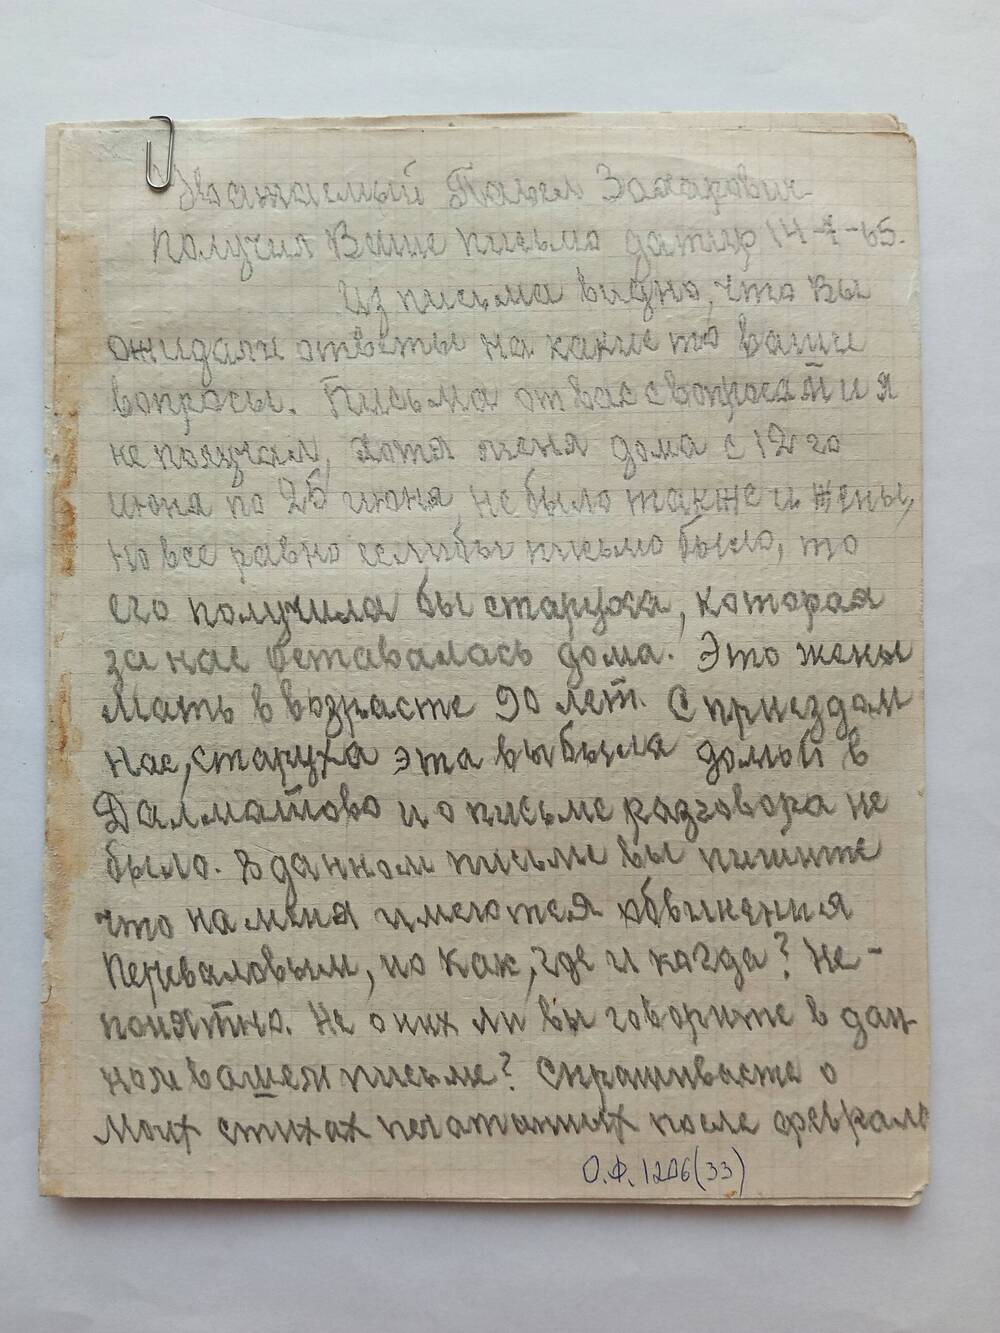 Уважаемый Павел Захарович
Получил Ваше письмо датир 14-5-65.
Из письма видно, что Вы
ожидали ответы на какие то ваши
вопросы. Письма от вас с вопросами я
не получал, хотя меня дома с 12 го
июня по 25 июня не было также и жены,
но все равно если бы письмо было, то
его получила бы старуха, которая
за нас оставалась дома. Это жены
мать в возрасте 90 лет. С приездом
нас, старуха эта выбыла домой в
Далматово и о письме разговора не
было. В данном письме вы пишите
что на меня имеются обвинения
Переваловым, но как, где и когда? Не-
понятно. Не о них ли вы говорите в дан-
ном вашем письме? Спрашиваете о
моих стихах печатанных после февраля
О.Ф. 1206(33)